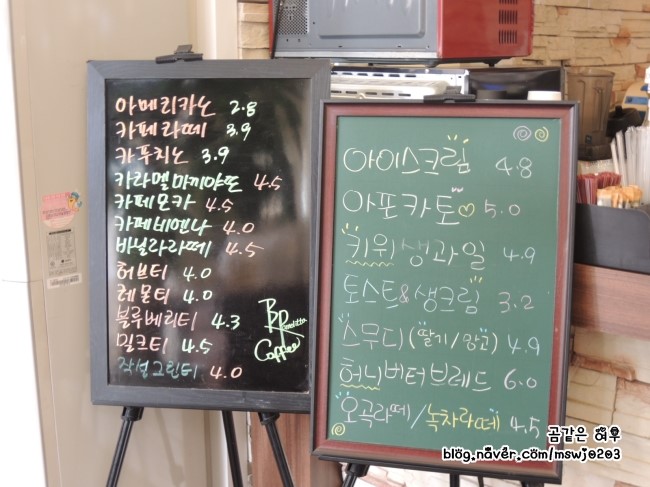 아메리카노 2.8
카페라떼 3.9
카푸치노 3.9
카라멜마끼야또 4.5
카페모카 4.5
카페비엔나 4.0
바닐라라떼 4.5
허브티 4.0
레몬티 4.0
블루베리티 4.3
밀크티 4.5
작설그린티 4.0
Coffee
아이스크림 4.8
아포카토 5.0
키위생과일 4.9
토스트&생크림 3.2
스무디(딸기/망고) 4.9
허니버터브레드 6.0
오곡라떼/녹차라떼 4.5
곰같은 여우
blog.naver.com/mswj0203